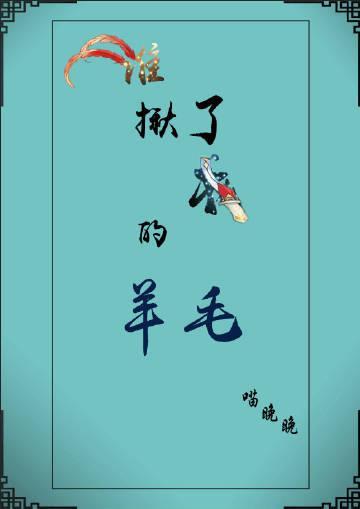 谁
揪了
的
羊毛
喵晚晚